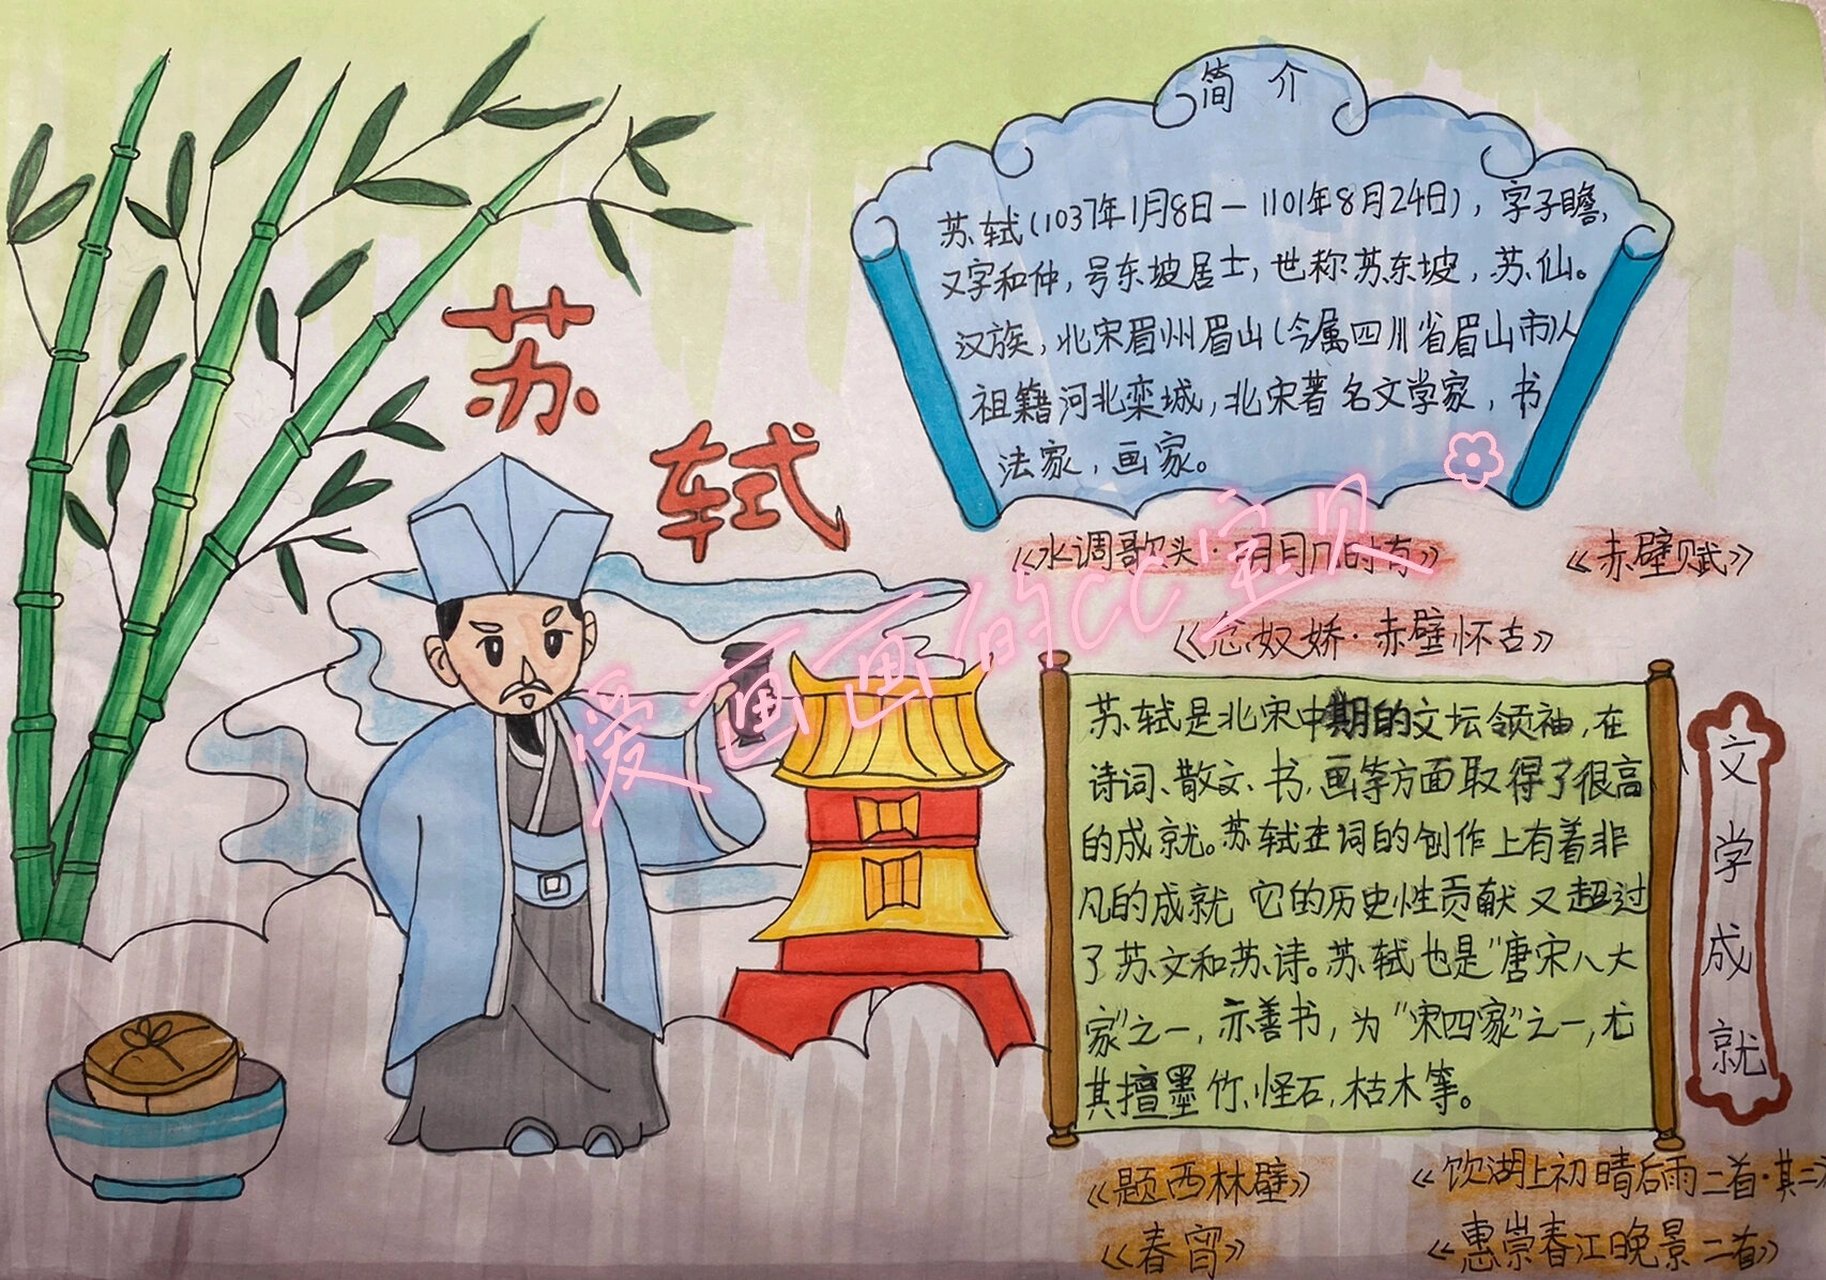 苏轼
简介
苏轼(1037年1月8日－1101年8月24日)，字子瞻，
又字和仲，号东坡居士，世称苏东坡，苏仙。
汉族，北宋眉州眉山(今属四川省眉山市)人
祖籍河北栾城，北宋著名文学家，书
法家，画家。
《水调歌头·明月几时有》
《赤壁赋》
《念奴娇·赤壁怀古》
苏轼是北宋中期的文坛领袖，在
诗词、散文、书、画等方面取得了很高
的成就。苏轼在词的创作上有着非
凡的成就 它的历史性贡献又超过
了苏文和苏诗。苏轼也是"唐宋八大
家"之一，亦善书，为"宋四家"之一，尤
其擅墨竹、怪石，枯木等。
文学成就
《题西林壁》
《饮湖上初晴后雨二首·其二》
《春宵》
《惠崇春江晚景二首》
爱画画的CC宝贝